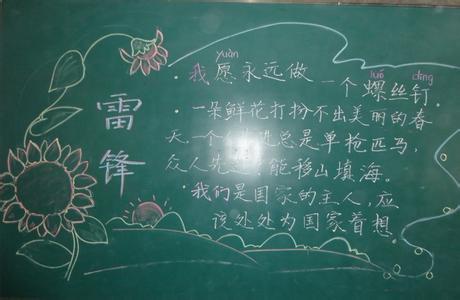 雷锋
yuàn luó dīng
·我愿永远做一个螺丝钉.
·一朵鲜花打扮不出美丽的春
天.一个 总是单枪匹马,
众人先 能移山填海。
·我们是国家的主人,应
该处处为国家着想.